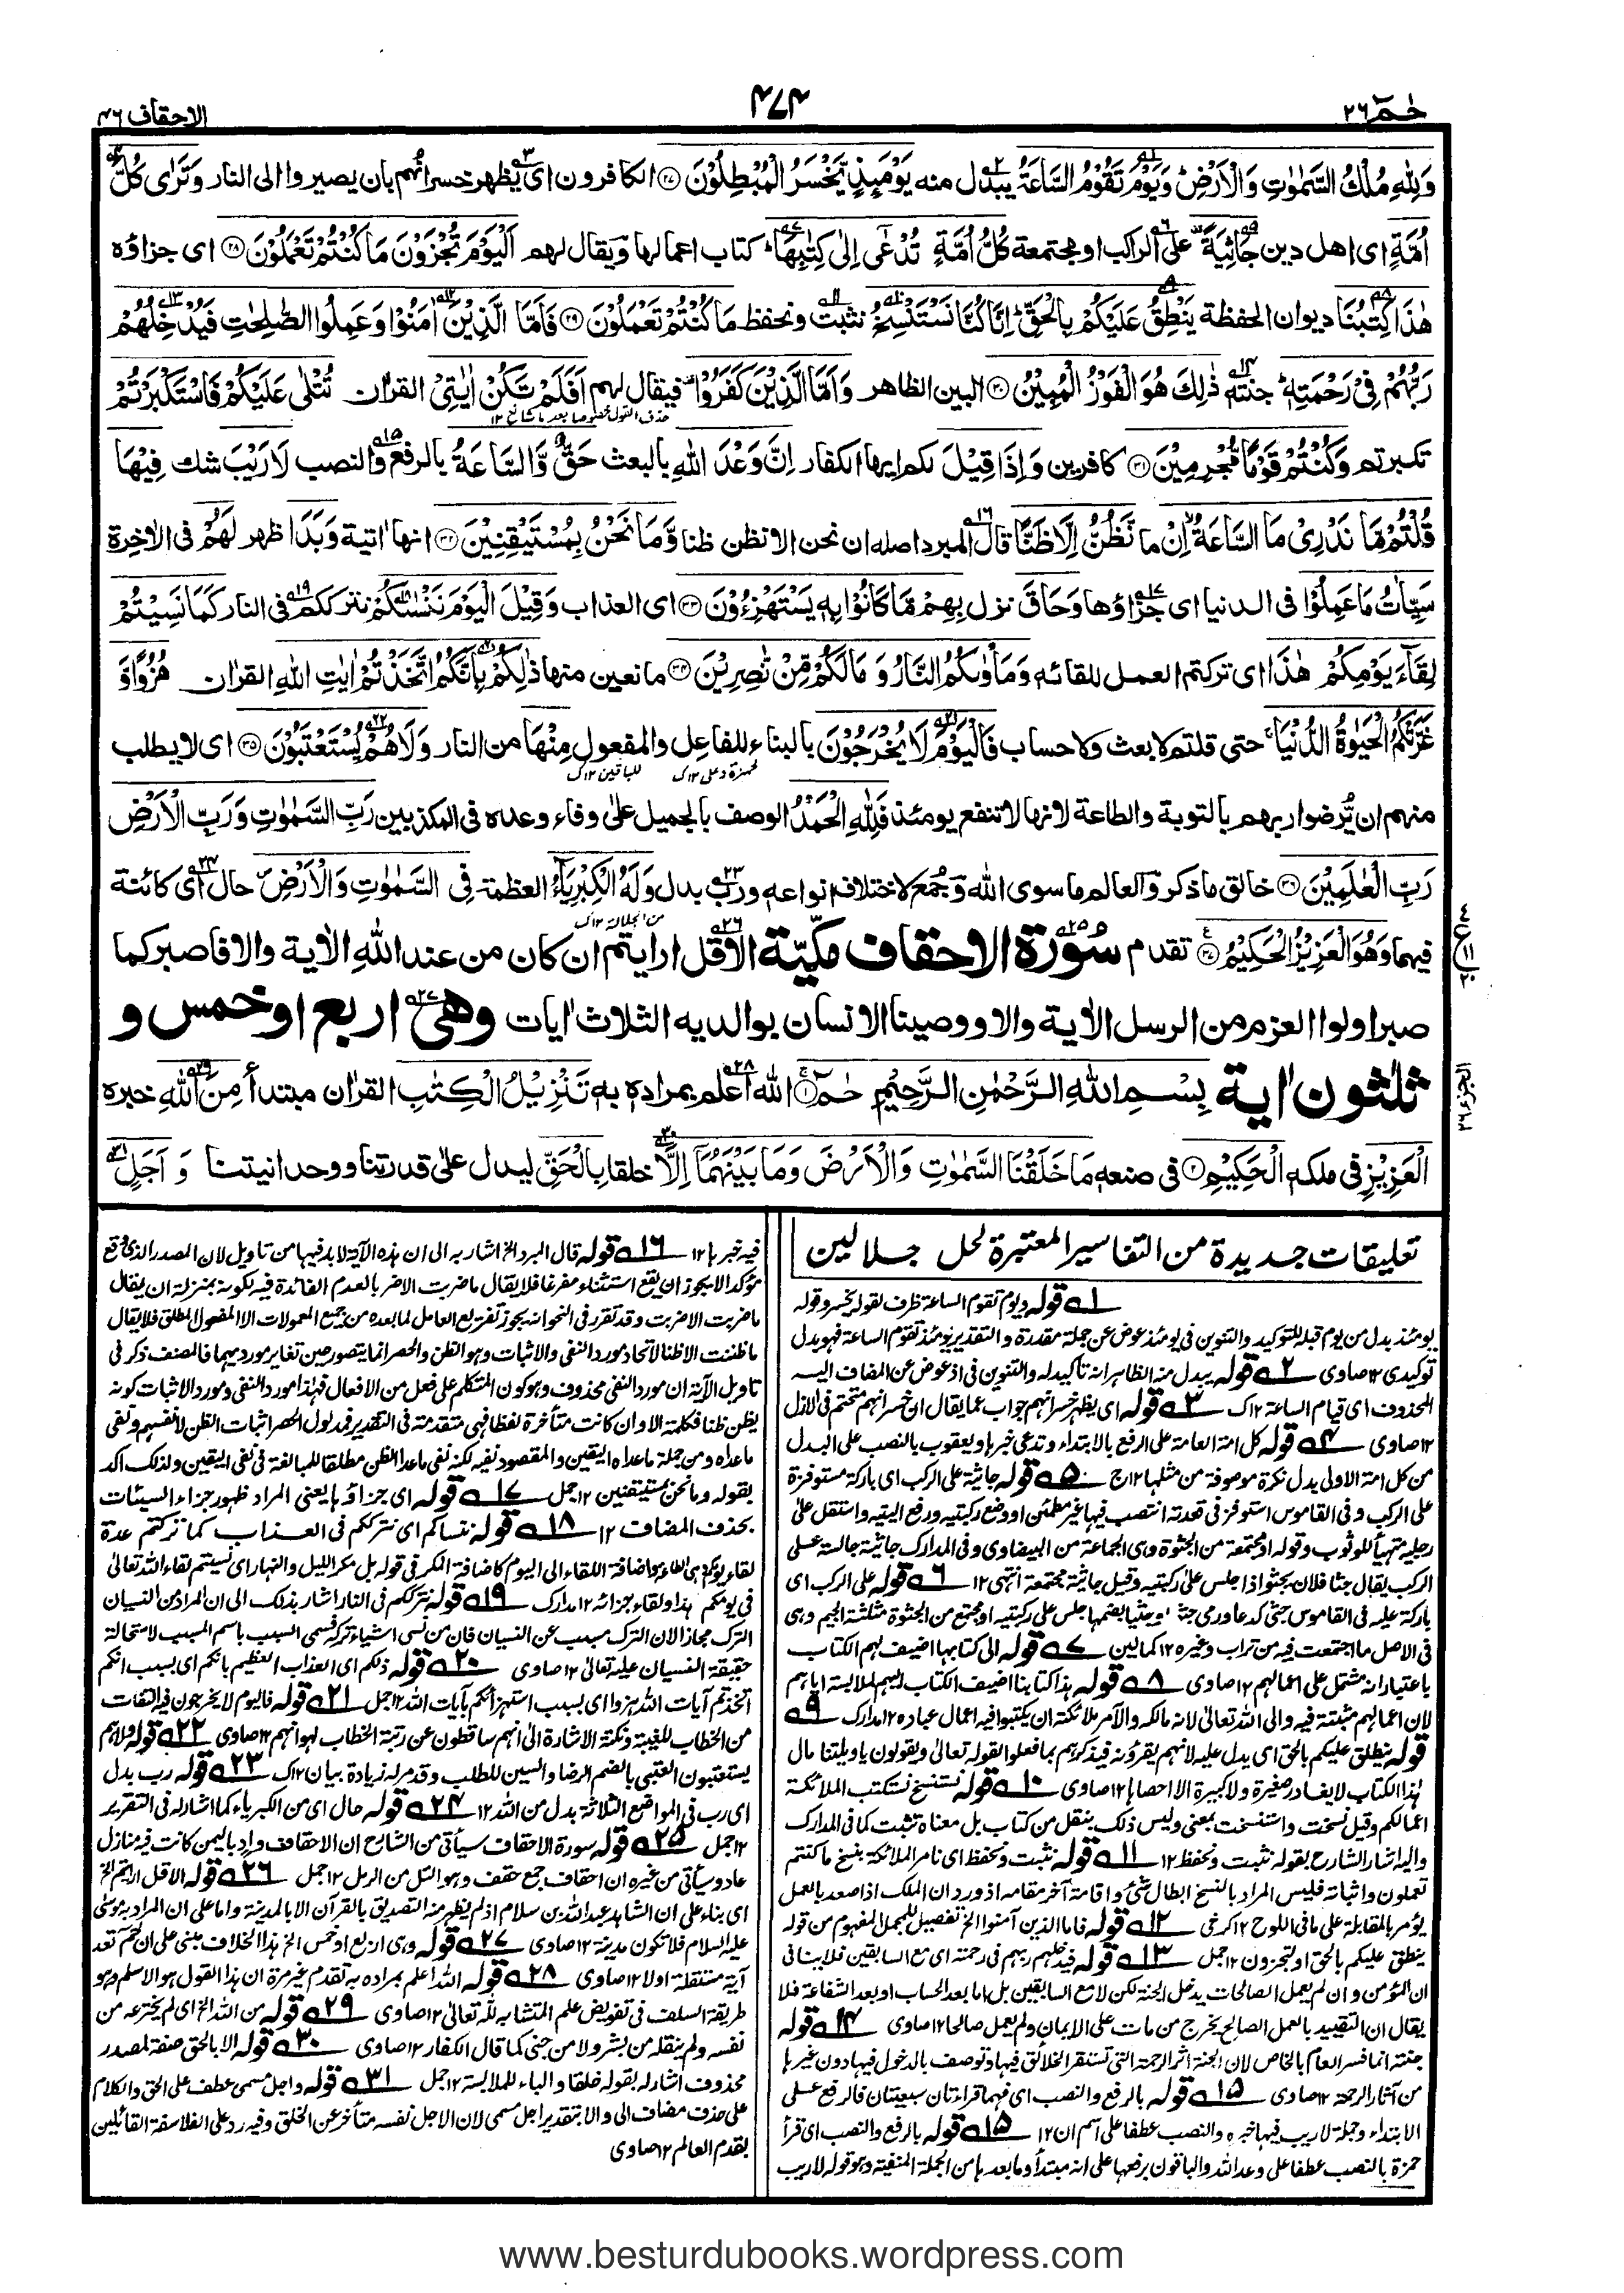 حٰمٓ ٢٦
٤٧٤
الاحقاف ٤٦
وَلِلّٰهِ مُلْكُ السَّمٰوٰتِ وَالْاَرْضِ ؕ وَيَوْمَ تَقُوْمُ السَّاعَةُ يبدل منه يَوْمَئِذٍ يَّخْسَرُ الْمُبْطِلُوْنَ ﴿٢٧﴾ الكافرون اى يظهر خسرانهم بان يصيروا الى النار وَتَرٰى كُلَّ
اُمَّةٍ اى اهل دين جَاثِيَةً ۫ على الركب او مجتمعة كُلُّ اُمَّةٍ تُدْعٰٓى اِلٰى كِتٰبِهَا ؕ كتاب اعمالها ويقال لهم اَلْيَوْمَ تُجْزَوْنَ مَا كُنْتُمْ تَعْمَلُوْنَ ﴿٢٨﴾ اى جزاؤه
هٰذَا كِتٰبُنَا ديوان الحفظة يَنْطِقُ عَلَيْكُمْ بِالْحَقِّ ؕ اِنَّا كُنَّا نَسْتَنْسِخُ نثبت ونحفظ مَا كُنْتُمْ تَعْمَلُوْنَ ﴿٢٩﴾ فَاَمَّا الَّذِيْنَ اٰمَنُوْا وَعَمِلُوا الصّٰلِحٰتِ فَيُدْخِلُهُمْ
رَبُّهُمْ فِيْ رَحْمَتِهٖ ؕ جنته ذٰلِكَ هُوَ الْفَوْزُ الْمُبِيْنُ ﴿٣٠﴾ البين الظاهر وَاَمَّا الَّذِيْنَ كَفَرُوْا ۫ فيقال لهم اَفَلَمْ تَكُنْ اٰيٰتِيْ القراٰن تُتْلٰى عَلَيْكُمْ فَاسْتَكْبَرْتُمْ
تكبرتم وَكُنْتُمْ قَوْمًا مُّجْرِمِيْنَ ﴿٣١﴾ كافرين وَاِذَا قِيْلَ لكم ايها الكفار اِنَّ وَعْدَ اللّٰهِ بالبعث حَقٌّ وَّالسَّاعَةُ بالرفع والنصب لَا رَيْبَ شك فِيْهَا
قُلْتُمْ مَّا نَدْرِيْ مَا السَّاعَةُ ۙ اِنْ ما نَّظُنُّ اِلَّا ظَنًّا قال المبرد اصله ان نحن الا نظن ظنا وَّمَا نَحْنُ بِمُسْتَيْقِنِيْنَ ﴿٣٢﴾ انها اٰتية وَبَدَا ظهر لَهُمْ فى الاٰخرة
سَيِّاٰتُ مَا عَمِلُوْا فى الدنيا اى جزاؤها وَحَاقَ نزل بِهِمْ مَّا كَانُوْا بِهٖ يَسْتَهْزِءُوْنَ ﴿٣٣﴾ اى العذاب وَقِيْلَ الْيَوْمَ نَنْسٰىكُمْ نترككم فى النار كَمَا نَسِيْتُمْ
لِقَآءَ يَوْمِكُمْ هٰذَا اى تركتم العمل للقائه وَمَاْوٰىكُمُ النَّارُ وَمَا لَكُمْ مِّنْ نّٰصِرِيْنَ ﴿٣٤﴾ مانعين منها ذٰلِكُمْ بِاَنَّكُمُ اتَّخَذْتُمْ اٰيٰتِ اللّٰهِ القراٰن هُزُوًا وَّ
غَرَّتْكُمُ الْحَيٰوةُ الدُّنْيَا ۚ حتى قلتم لا بعث ولا حساب فَالْيَوْمَ لَا يُخْرَجُوْنَ بالبناء للفاعل والمفعول مِنْهَا من النار وَلَا هُمْ يُسْتَعْتَبُوْنَ ﴿٣٥﴾ اى لا يطلب
منهم ان يُرضوا ربهم بالتوبة والطاعة لانها لا تنفع يومئذ فَلِلّٰهِ الْحَمْدُ الوصف بالجميل على وفاء وعده فى المكذبين رَبِّ السَّمٰوٰتِ وَرَبِّ الْاَرْضِ
رَبِّ الْعٰلَمِيْنَ ﴿٣٦﴾ خالق ما ذكر والعالم ما سوى الله وجُمع لاختلاف انواعه ورب بدل وَلَهُ الْكِبْرِيَآءُ العظمة فِى السَّمٰوٰتِ وَالْاَرْضِ ۪ حال اى كائنة
فيهما وَهُوَ الْعَزِيْزُ الْحَكِيْمُ ﴿٣٧﴾ تقدم سُوْرَة الاحقاف مكيّة الا قل ارايتم ان كان من عند الله الاٰية والا فاصبر كما
صبر اولوا العزم من الرسل الاٰية والا ووصينا الانسان بوالديه الثلاث اٰيات وهى اربع او خمس و
ثلثون اٰية بِسْمِ اللّٰهِ الرَّحْمٰنِ الرَّحِيْمِ حٰمٓ ﴿١﴾ الله اعلم بمراده به تَنْزِيْلُ الْكِتٰبِ القراٰن مبتدأ مِنَ اللّٰهِ خبره
الْعَزِيْزِ فى ملكه الْحَكِيْمِ ﴿٢﴾ فى صنعه مَا خَلَقْنَا السَّمٰوٰتِ وَالْاَرْضَ وَمَا بَيْنَهُمَآ اِلَّا خلقا بِالْحَقِّ ليدل على قدرتنا ووحدانيتنا وَ اَجَلٍ
تعليقات جديدة من التفاسير المعتبرة لحل جلالين
١ قوله ويوم تقوم الساعة ظرف لقوله يخسر وقوله
يومئذ بدل من يوم قبله للتوكيد والتنوين فى يومئذ عوض عن جملة مقدرة والتقدير يومئذ تقوم الساعة فهو بدل
توكيدى ١٢ صاوى ٢ قوله يبدل منه الظاهر انه تاكيد له والتنوين فى اذ عوض عن المضاف اليه
المحذوف اى قيام الساعة ١٢ ك ٣ قوله اى يظهر خسرانهم جواب عما يقال ان خسرانهم متحتم فى الازل
١٢ صاوى ٤ قوله كل امة العامة على الرفع بالابتداء وتدعى خبرها ويعقوب بالنصب على البدل
من كل امة الاولى بدل نكرة موصوفة من مثلها ١٢ ج ٥ قوله جاثية على الركب اى باركة مستوفزة
على الركب وفى القاموس استوفز فى قعدته انتصب فيها غير مطمئن او وضع ركبتيه ورفع اليتيه واستقل على
رجليه متهيأ للوثوب وقوله او مجتمعة من الجثوة وهى الجماعة من البيضاوى وفى المدارك جاثية جالسة على
الركب يقال جثا فلان يجثو اذا جلس على ركبتيه وقيل جاثية مجتمعة انتهى ١٢ ٦ قوله على الركب اى
باركة عليه فى القاموس جثى كدعا ورمى جثوا وجثيا بضمهما جلس على ركبتيه او مجتمع من الجثوة مثلثة الجيم وهى
فى الاصل ما اجتمعت فيه من تراب وغيره ١٢ كمالين ٧ قوله الى كتابها اضيف لهم الكتاب
باعتبار انه مشتمل على اعمالهم ١٢ صاوى ٨ قوله هذا كتابنا اضيف الكتاب اليهم لملابسة اياهم
لان اعمالهم مثبتة فيه والى الله تعالى لانه مالكه والآمر ملائكته ان يكتبوا فيه اعمال عباده ١٢ مدارك ٩
قوله ينطق عليكم بالحق اى يدل عليه لانهم يقرؤنه فيذكرهم بما فعلوا لقوله تعالى ويقولون يا ويلتنا مال
هذا الكتاب لا يغادر صغيرة ولا كبيرة الا احصاها ١٢ صاوى ١٠ قوله نستنسخ نستكتب الملائكة
اعمالكم وقيل نسخت واستنسخت بمعنى وليس ذلك بنقل من كتاب بل معناه نثبت كما فى المدارك
واليه اشار الشارح بقوله نثبت ونحفظ ١٢ ١١ قوله نثبت ونحفظ اى نامر الملائكة بنسخ ما كنتم
تعملون واثباته فليس المراد بالنسخ ابطال شئ واقامة آخر مقامه اذ ورد ان الملك اذا صعد بالعمل
يؤمر بالمقابلة على ما فى اللوح ١٢ كرخى ١٢ قوله فاما الذين آمنوا الخ تفصيل للمجمل المفهوم من قوله
ينطق عليكم بالحق او تجزون ١٢ جمل ١٣ قوله فيدخلهم ربهم فى رحمته اى مع السابقين فلا ينافى
ان المؤمن وان لم يعمل الصالحات يدخل الجنة لكن لا مع السابقين بل اما بعد الحساب او بعد الشفاعة فلا
يقال ان التقييد بالعمل الصالح يخرج من مات على الايمان ولم يعمل صالحا ١٢ صاوى ١٤ قوله
جنته انما فسر العام بالخاص لان الجنة اثر الرحمة التى تستقر الخلائق فيها وتوصف بالدخول فيها دون غيرها
من آثار الرحمة ١٢ صاوى ١٥ قوله بالرفع والنصب اى فهما قراءتان سبعيتان فالرفع على
الابتداء وجملة لا ريب فيها خبره والنصب عطفا على اسم ان ١٢ ١٥ قوله بالرفع والنصب اى قرأ
حمزة بالنصب عطفا على وعد الله والباقون برفعها على انه مبتدأ وما بعدها من الجملة المنفية وهو قوله لا ريب
فيه خبرها ١٢ ١٦ قوله قال المبرد الخ اشار به الى ان هذه الآية لا بد فيها من تاويل لان المصدر الذى وقع
مؤكدا لا يجوز ان يقع استثناء مفرغا فلا يقال ما ضربت الا ضربا لعدم الفائدة فيه لكونه بمنزلة ان يقال
ما ضربت الا ضربت وقد تقرر فى النحو انه يجوز تفريغ العامل لما بعده من جميع المعمولات الا المفعول المطلق فلا يقال
ما ظننت الا ظنا لاتحاد مورد النفى والاثبات وهو الظن والحصر انما يتصور حين تغاير مورديهما فالمصنف ذكر فى
تاويل الآية ان مورد النفى محذوف وهو كون المتكلم على فعل من الافعال فهذا مورد النفى ومورد الاثبات كونه
يظن ظنا فكلمة الا وان كانت متأخرة لفظا فهى متقدمة فى التقدير فمدلول الحصر اثبات الظن لانفسهم ونفى
ما عداه ومن جملة ما عداه اليقين والمقصود نفيه لكنه نفى ما عدا الظن مطلقا للمبالغة فى نفى اليقين ولذلك اكد
بقوله وما نحن بمستيقنين ١٢ جمل ١٧ قوله اى جزاؤها يعنى المراد ظهور جزاء السيئات
بحذف المضاف ١٢ ١٨ قوله ننساكم اى نترككم فى العذاب كما تركتم عدة
لقاء يومكم وهى الطاعة واضافة اللقاء الى اليوم كاضافة المكر فى قوله بل مكر الليل والنهار اى نسيتم لقاء الله تعالى
فى يومكم هذا ولقاء جزائه ١٢ مدارك ١٩ قوله نترككم فى النار اشار بذلك الى ان المراد من النسيان
الترك مجازا لان الترك مسبب عن النسيان فان من نسى اشياء تركه فسمى السبب باسم المسبب لاستحالة
حقيقة النسيان عليه تعالى ١٢ صاوى ٢٠ قوله ذلكم اى العذاب العظيم بانكم اى بسبب انكم
اتخذتم آيات الله هزوا اى بسبب استهزائكم بآيات الله ١٢ جمل ٢١ قوله فاليوم لا يخرجون فيه التفات
من الخطاب للغيبة ونكتة الاشارة الى انهم ساقطون عن رتبة الخطاب لهوانهم ١٢ صاوى ٢٢ قوله ولا هم
يستعتبون العتبى بالضم الرضا والسين للطلب وقد مر له زيادة بيان ١٢ ك ٢٣ قوله رب بدل
اى رب فى المواضع الثلاثة بدل من الله ١٢ ٢٤ قوله حال اى من الكبرياء كما اشار له فى التقرير
١٢ جمل ٢٥ قوله سورة الاحقاف سيأتى من الشارح ان الاحقاف واد باليمن كانت فيه منازل
عاد وسيأتى من غيره ان احقاف جمع حقف وهو التل من الرمل ١٢ جمل ٢٦ قوله الا قل ارايتم الخ
اى بناء على ان الشاهد عبد الله بن سلام اذ لم يظهر منه التصديق بالقرآن الا بالمدينة واما على ان المراد به موسى
عليه السلام فلا تكون مدنية ١٢ صاوى ٢٧ قوله وهى اربع او خمس الخ هذا الخلاف مبنى على ان حم تعد
آية مستقلة او لا ١٢ صاوى ٢٨ قوله الله اعلم بمراده به تقدم غير مرة ان هذا القول هو الاسلم وهو
طريقة السلف فى تفويض علم المتشابه لله تعالى ١٢ صاوى ٢٩ قوله من الله الخ اى لم يخترعه من
نفسه ولم ينقله من بشر ولا من جنى كما قال الكفار ١٢ صاوى ٣٠ قوله الا بالحق صفة لمصدر
محذوف اشار له بقوله خلقا والباء للملابسة ١٢ جمل ٣١ قوله واجل مسمى عطف على الحق والكلام
على حذف مضاف الى والا بتقدير اجل مسمى لان الاجل نفسه متأخر عن الخلق وفيه رد على الفلاسفة القائلين
بقدم العالم ١٢ صاوى
www.besturdubooks.wordpress.com